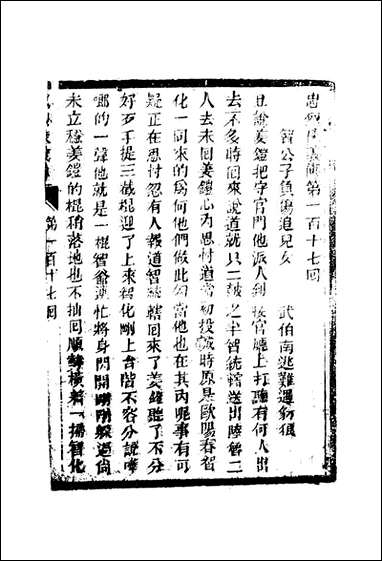 忠烈俠義傳第一百十七回
智公子負傷追兒女　武伯南逃難遇豺狼
且說姜鎧把守宫門他派人到接官廳上打聽有何人出
去不多時回來說道就只二鼓之半智統轄送出陸魯二
人去未回姜鎧心內思忖道當初投誠時原是歐陽春智
化一同來的爲何他們做此勾當他也在其內呢事有可
疑正在思忖忽有人報道智統轄回來了姜鎧聽了不分
好歹手提三截棍迎了上來智化剛上台階不容分說嘩
啷的一聲他就是一棍智爺連忙將身閃開剛剛躲過尚
未立穩姜鎧的棍稍落地也不抽回順勢橫着一掃智化
第一百十七回